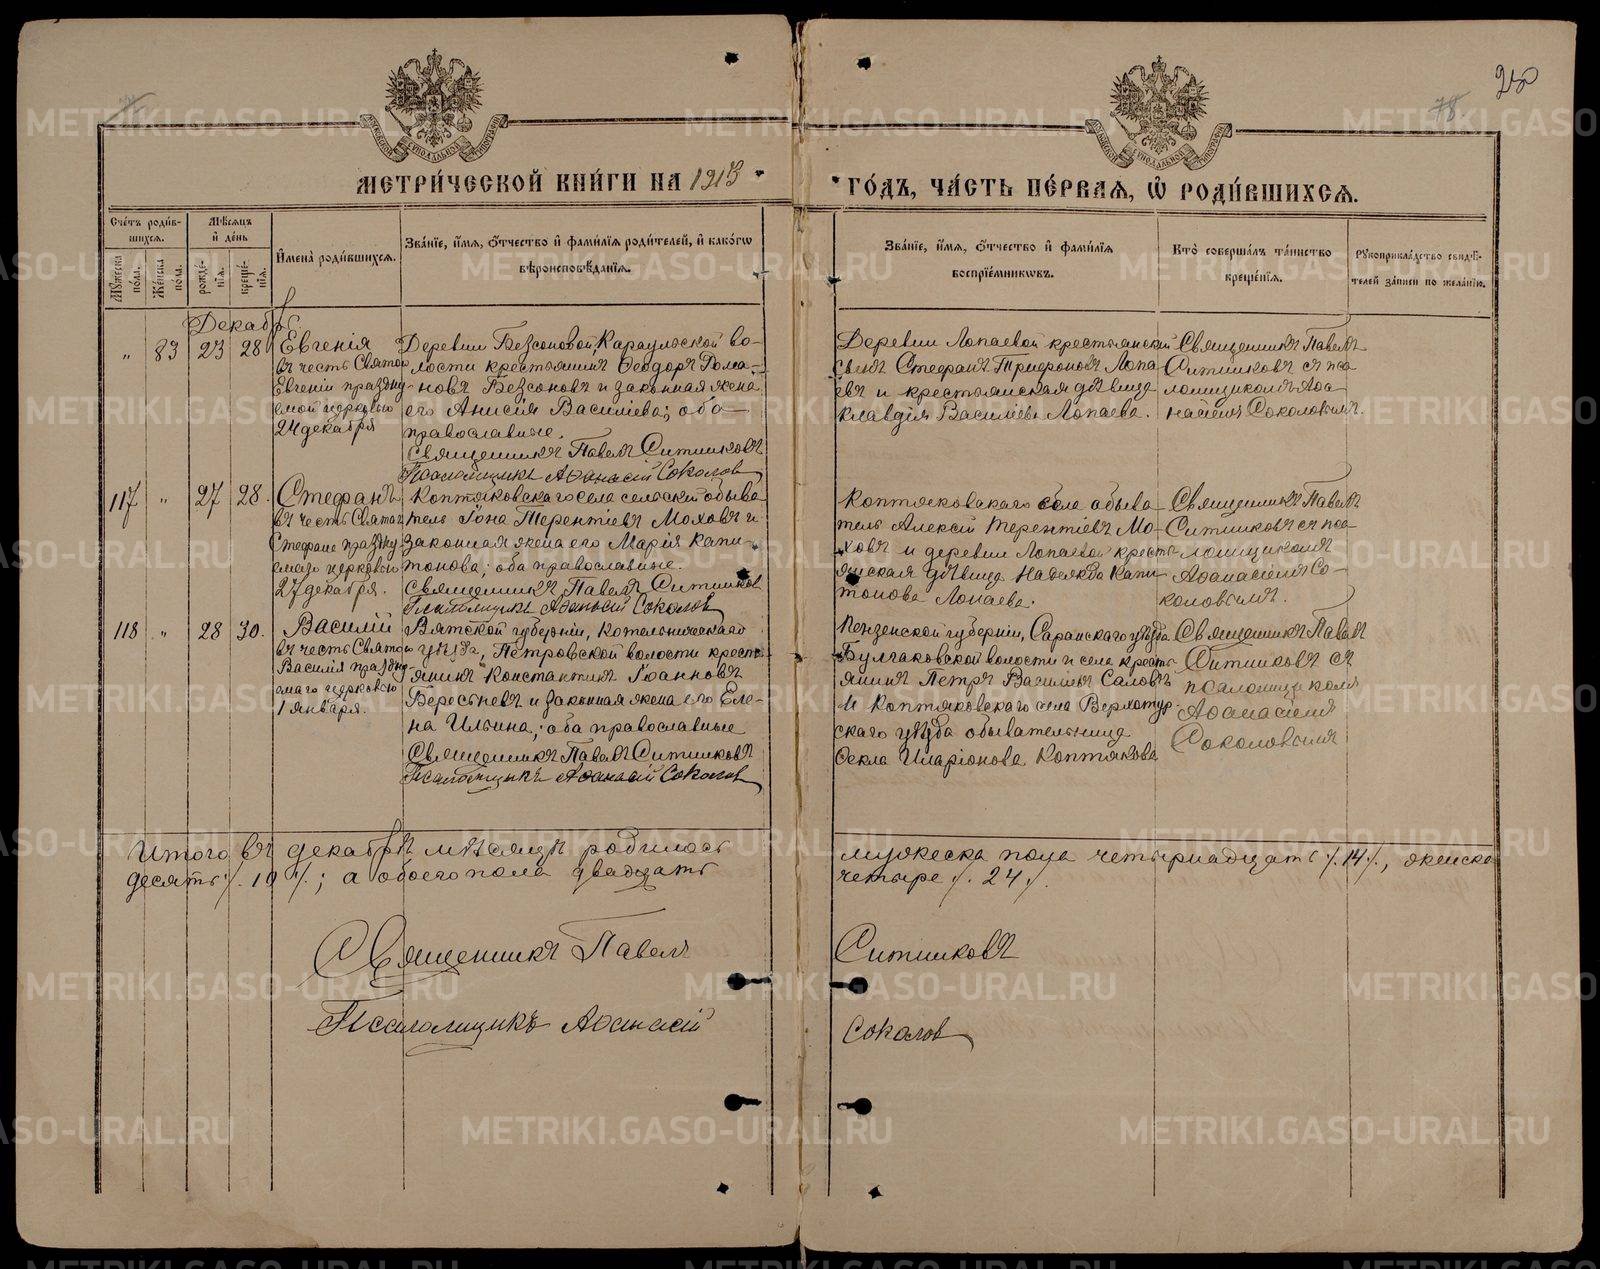 250
78
МЕТРИ́ЧЕСКОЙ КНИ́ГИ НА 1913
ГО́ДЪ, ЧА́СТЬ ПЕ́РВАЯ, Ѡ҆ РОДИ́ВШИХСЯ.
Сче́тъ роди́вшихся.
Мꙋ́жеска по́ла.
Же́нска по́ла.
Мѣ́сяцъ и҆ де́нь
рожде́нїя.
креще́нїя.
И҆мена̀ роди́вшихся.
Зва́нїе, и҆́мя, ѻ҆́тчество и҆ фами́лїя роди́телей, и҆ како́гѡ
вѣроисповѣ́данїя.
Зва́нїе, и҆́мя, ѻ҆́тчество и҆ фами́лїя
воспрїе́мникѡвъ.
Кто̀ соверша́лъ та́инство
креще́нїя.
Рꙋкоприкла́дство свидѣ́телей за́писи по жела́нїю.
Декабрь
„ 83 23 28
Евгенія
въ честь Святой
Евгеніи праздну-
емой церковью
24 декабря
Деревни Безсоновой, Караульской во-
лости крестьянинъ Ѳеодоръ Рома-
новъ Безсоновъ и законная жена
его Анисія Василіева; оба
православные.
Священникъ Павелъ Ситниковъ
Псаломщикъ Аѳанасій Соколов
Деревни Лопаевой крестьянскій
сынъ Стефанъ Трифоновъ Лопа-
евъ и крестьянская дѣвица
Клавдія Василіева Лопаева.
Священникъ Павелъ
Ситниковъ съ пса-
ломщикомъ Аѳа-
насіемъ Соколовымъ.
117 „ 27 28.
Стефанъ
въ честь Святаго
Стефана праздну-
емаго церковью
27 декабря.
Коптяковскаго села сельскій обыва-
тель Іона Терентіевъ Моховъ и
законная жена его Марія Капи-
тонова; оба православные.
Священникъ Павелъ Ситников
Псаломщикъ Аѳанасій Соколов
Коптяковскаго села обыва-
тель Алексій Терентіевъ Мо-
ховъ и деревни Лопаевой кресть-
янская дѣвица Надежда Капи-
тонова Лопаева.
Священникъ Павелъ
Ситниковъ съ пса-
ломщикомъ
Аѳанасіемъ Со-
коловымъ.
118 „ 28 30.
Василій
въ честь Святого
Василія праздну-
емаго церковью
1 января.
Вятской губерніи, Котельническаго
уѣзда, Петровской волости кресть-
янинъ Константинъ Іоанновъ
Береснёвъ и законная жена его Еле-
на Ильина; оба православные
Священникъ Павелъ Ситниковъ
Псаломщикъ Аѳанасій Соколов
Пензенской губерніи, Саранскаго уѣзда
Булгаковской волости и села кресть-
янинъ Петръ Василіевъ Саловъ
и Коптяковскаго села Верхотур-
скаго уѣзда обывательница
Ѳекла Иларіонова Коптякова
Священникъ Павелъ
Ситниковъ съ
псаломщикомъ
Аѳанасіемъ
Соколовымъ
Итого въ декабрѣ мѣсяцѣ родилось
мужеска пола четырнадцать /.14/., женска
десять /.10/.; а обоего пола двадцать
четыре /. 24/.
Священникъ Павелъ
Ситниковъ
Псаломщикъ Аѳанасій
Соколов
METRIKI.GASO-URAL.RU